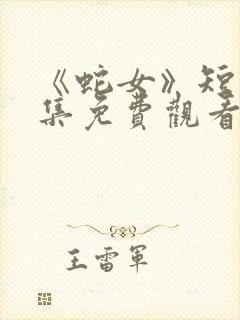 《蛇女》短
集免費觀看
王雷軍